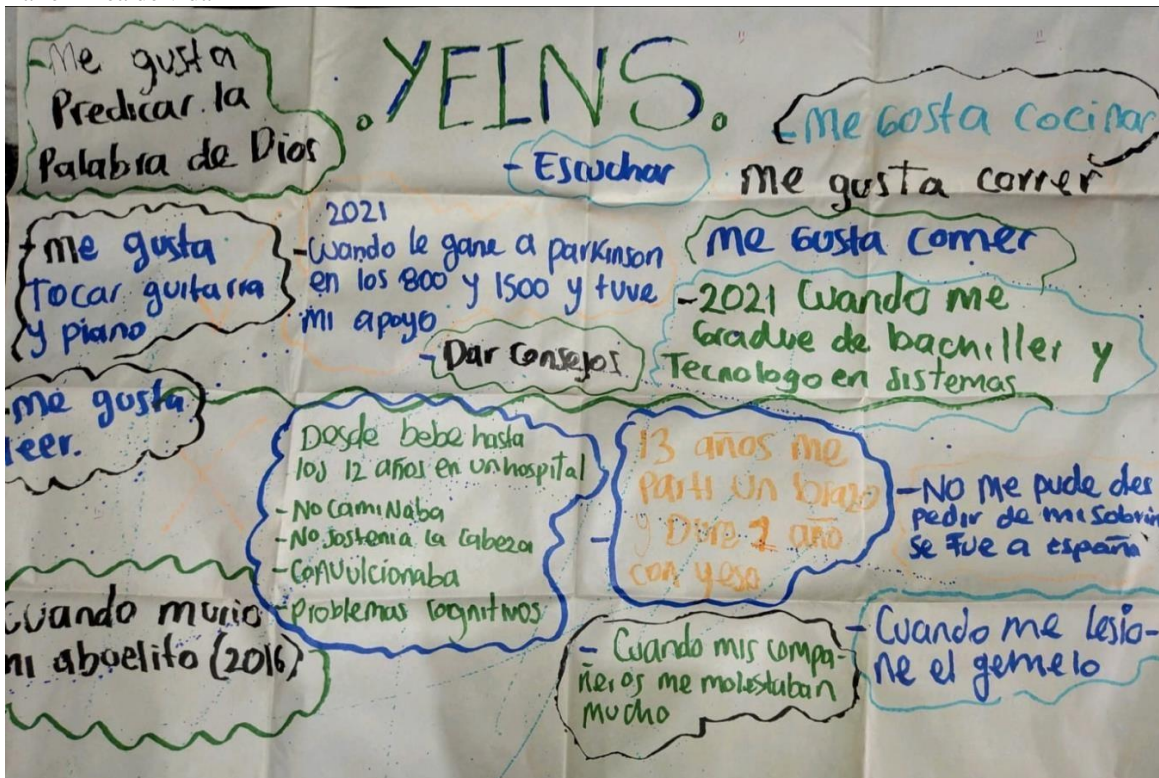 -Me gusta
Predicar. la
Palabra de Dios
.YEINS.
- Escuchar
-Me Gosta cocinar
me gusta correr
-me gusta
Tocar guitarra
y piano
2021
-Cuando le gane a parkinson
en los 800 y 1500 y tuve
mi apoyo
- Dar Consejos
me Gusta comer
-2021 Cuando me
Gradue de bachiller y
Tecnologo en sistemas
-me gusta
leer.
Desde bebe hasta
los 12 años en un hospital
- No camiNaba
- No sostenia la Cabeza
- Convulcionaba
- Problemas cognitivos
- 13 años me
Parti un brazo
y Dure 1 año
con yeso
-No me pude des
pedir de mi sobrin
se Fue a España
Cuando murio
mi abuelito (2016)
- Cuando mis compa-
ñeros me molestaban
mucho
- Cuando me Lesio-
ne el gemelo